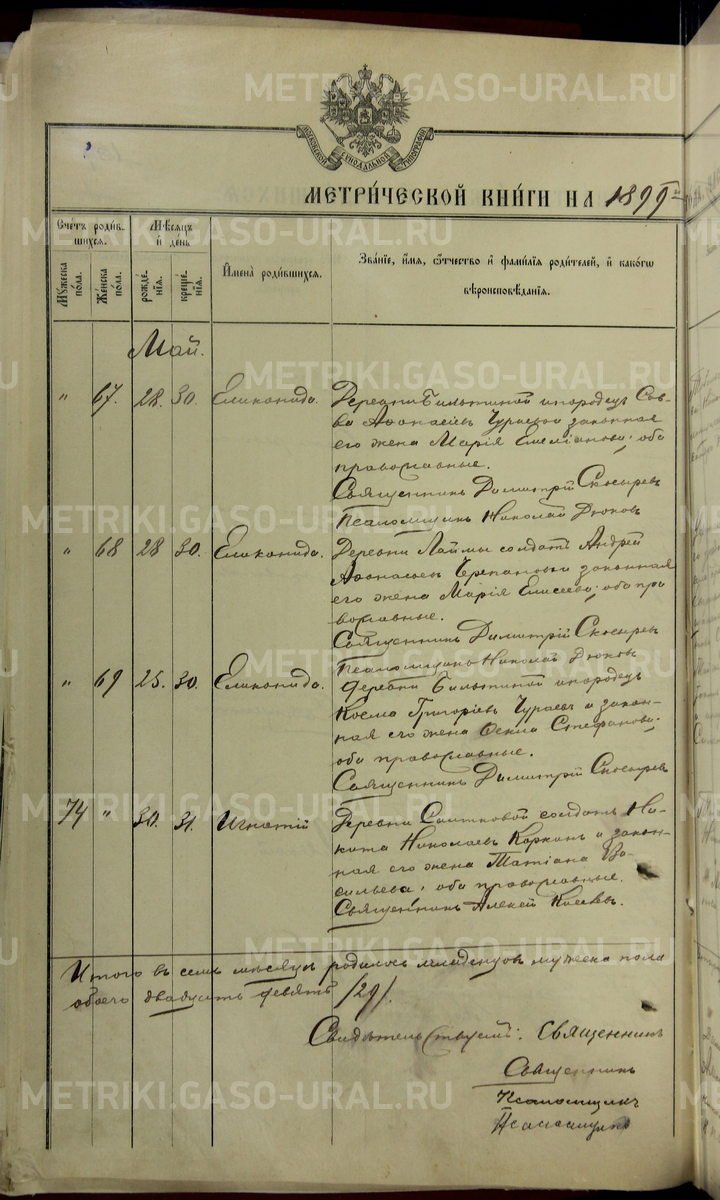 МОСКОВСКОЙ СѴНОДАЛЬНОЙ ТИПОГРАФІИ
МЕТРИ́ЧЕСКОЙ КНИ́ГИ НА 1899
Сче́тъ роди́в- шихся.
Мѣ́сяцъ и҆ день
Мꙋ́жеска по́ла.
Же́нска по́ла.
рожде́- нїѧ.
креще́- нїѧ.
И҆мена̀ роди́вшихсѧ.
Зва́нїе, и҆́мѧ, ѻ҆́тчество и҆ фами́лїѧ роди́телей, и҆ како́гѡ
вѣроисповѣ́данїѧ.
Май.
" 67. 28. 30. Еликонида. Деревни Бильтиной инородецъ Сав-
ва Аѳонасіевъ Чураевъ законная
его жена Марія Емеліанова; оба
православные.
Священникъ Димитрій Скосыревъ
Псаломщикъ Николай Дюковъ
" 68 28 30. Еликонида. Деревни Лаймы солдатъ Андрей
Аѳонасьевъ законная
его жена Марія Елисеева; оба пра
вославные.
Священникъ Димитрій Скосыревъ
Псаломщикъ Николай Дюковъ
" 69 25. 30. Еликонида. Деревни Бильтиной инородецъ
Косма Григоріевъ Чураевъ и закон-
ная его жена Стефанова;
оба православные.
Священникъ Димитрій Скосыревъ
74 " 30. 31. Игнатій Деревни солдатъ Ни-
кита Николаевъ и закон-
ная его жена Татіана Ва-
сильева; оба православные.
Священникъ Алексей
Итого въ семъ мѣсяцѣ родилось младенцовъ мужеска пола
обоего двадцать девять /29/.
Свидѣтельствуемъ: Священникъ
Священникъ
Псаломщикъ
Псаломщикъ
METRIKI.GASO-URAL.RU